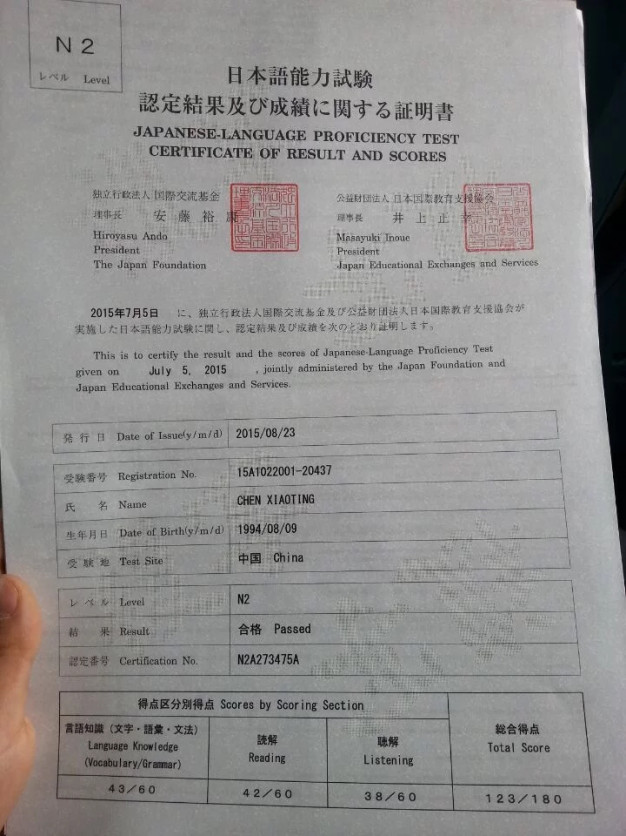 N2
レベル Level
日本語能力試験
認定結果及び成績に関する証明書
JAPANESE-LANGUAGE PROFICIENCY TEST
CERTIFICATE OF RESULT AND SCORES
独立行政法人 国際交流基金
理事長 安藤裕康
Hiroyasu Ando
President
The Japan Foundation
公益財団法人 日本国際教育支援協会
理事長 井上正幸
Masayuki Inoue
President
Japan Educational Exchanges and Services
2015年7月5日 に、独立行政法人国際交流基金及び公益財団法人日本国際教育支援協会が
実施した日本語能力試験に関し、認定結果及び成績を次のとおり証明します。
This is to certify the result and the scores of Japanese-Language Proficiency Test
given on July 5, 2015 , jointly administered by the Japan Foundation and
Japan Educational Exchanges and Services.
発行日 Date of Issue(y/m/d) 2015/08/23
受験番号 Registration No. 15A1022001-20437
氏名 Name CHEN XIAOTING
生年月日 Date of Birth(y/m/d) 1994/08/09
受験地 Test Site 中国 China
レベル Level N2
結果 Result 合格 Passed
認定番号 Certification No. N2A273475A
得点区分別得点 Scores by Scoring Section
言語知識(文字・語彙・文法)
Language Knowledge
(Vocabulary/Grammar)
読解
Reading
聴解
Listening
総合得点
Total Score
43/60 42/60 38/60 123/180